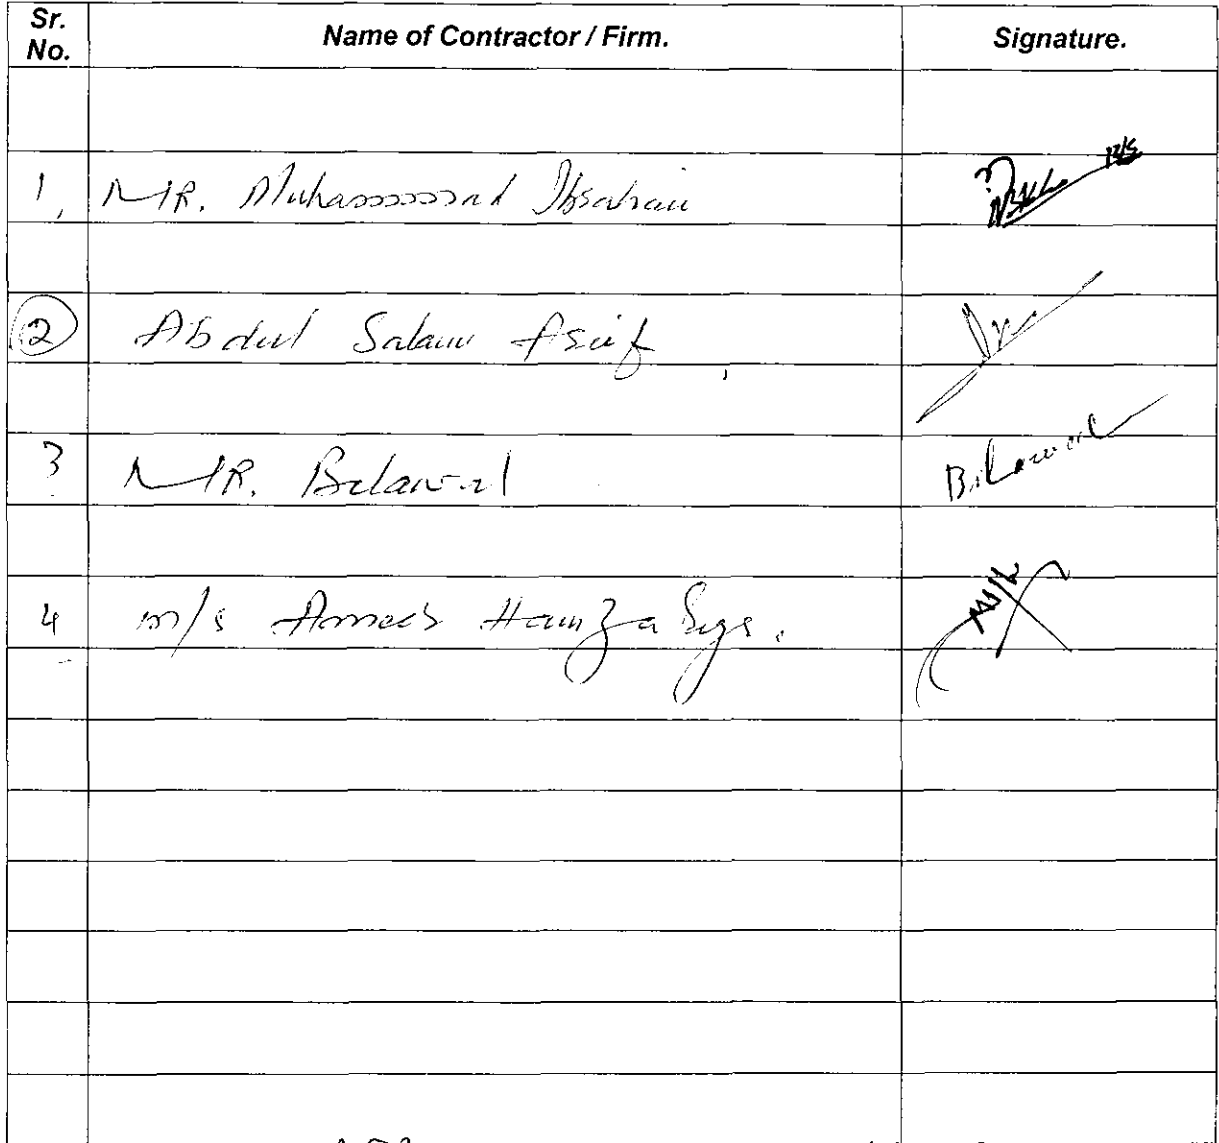 Sr. No.
Name of Contractor / Firm.
Signature.
1, MR. Muhammad Ibrahim
2 Abdul Salam Asif
3 MR. Belawal Bilawal
4 m/s Hamza